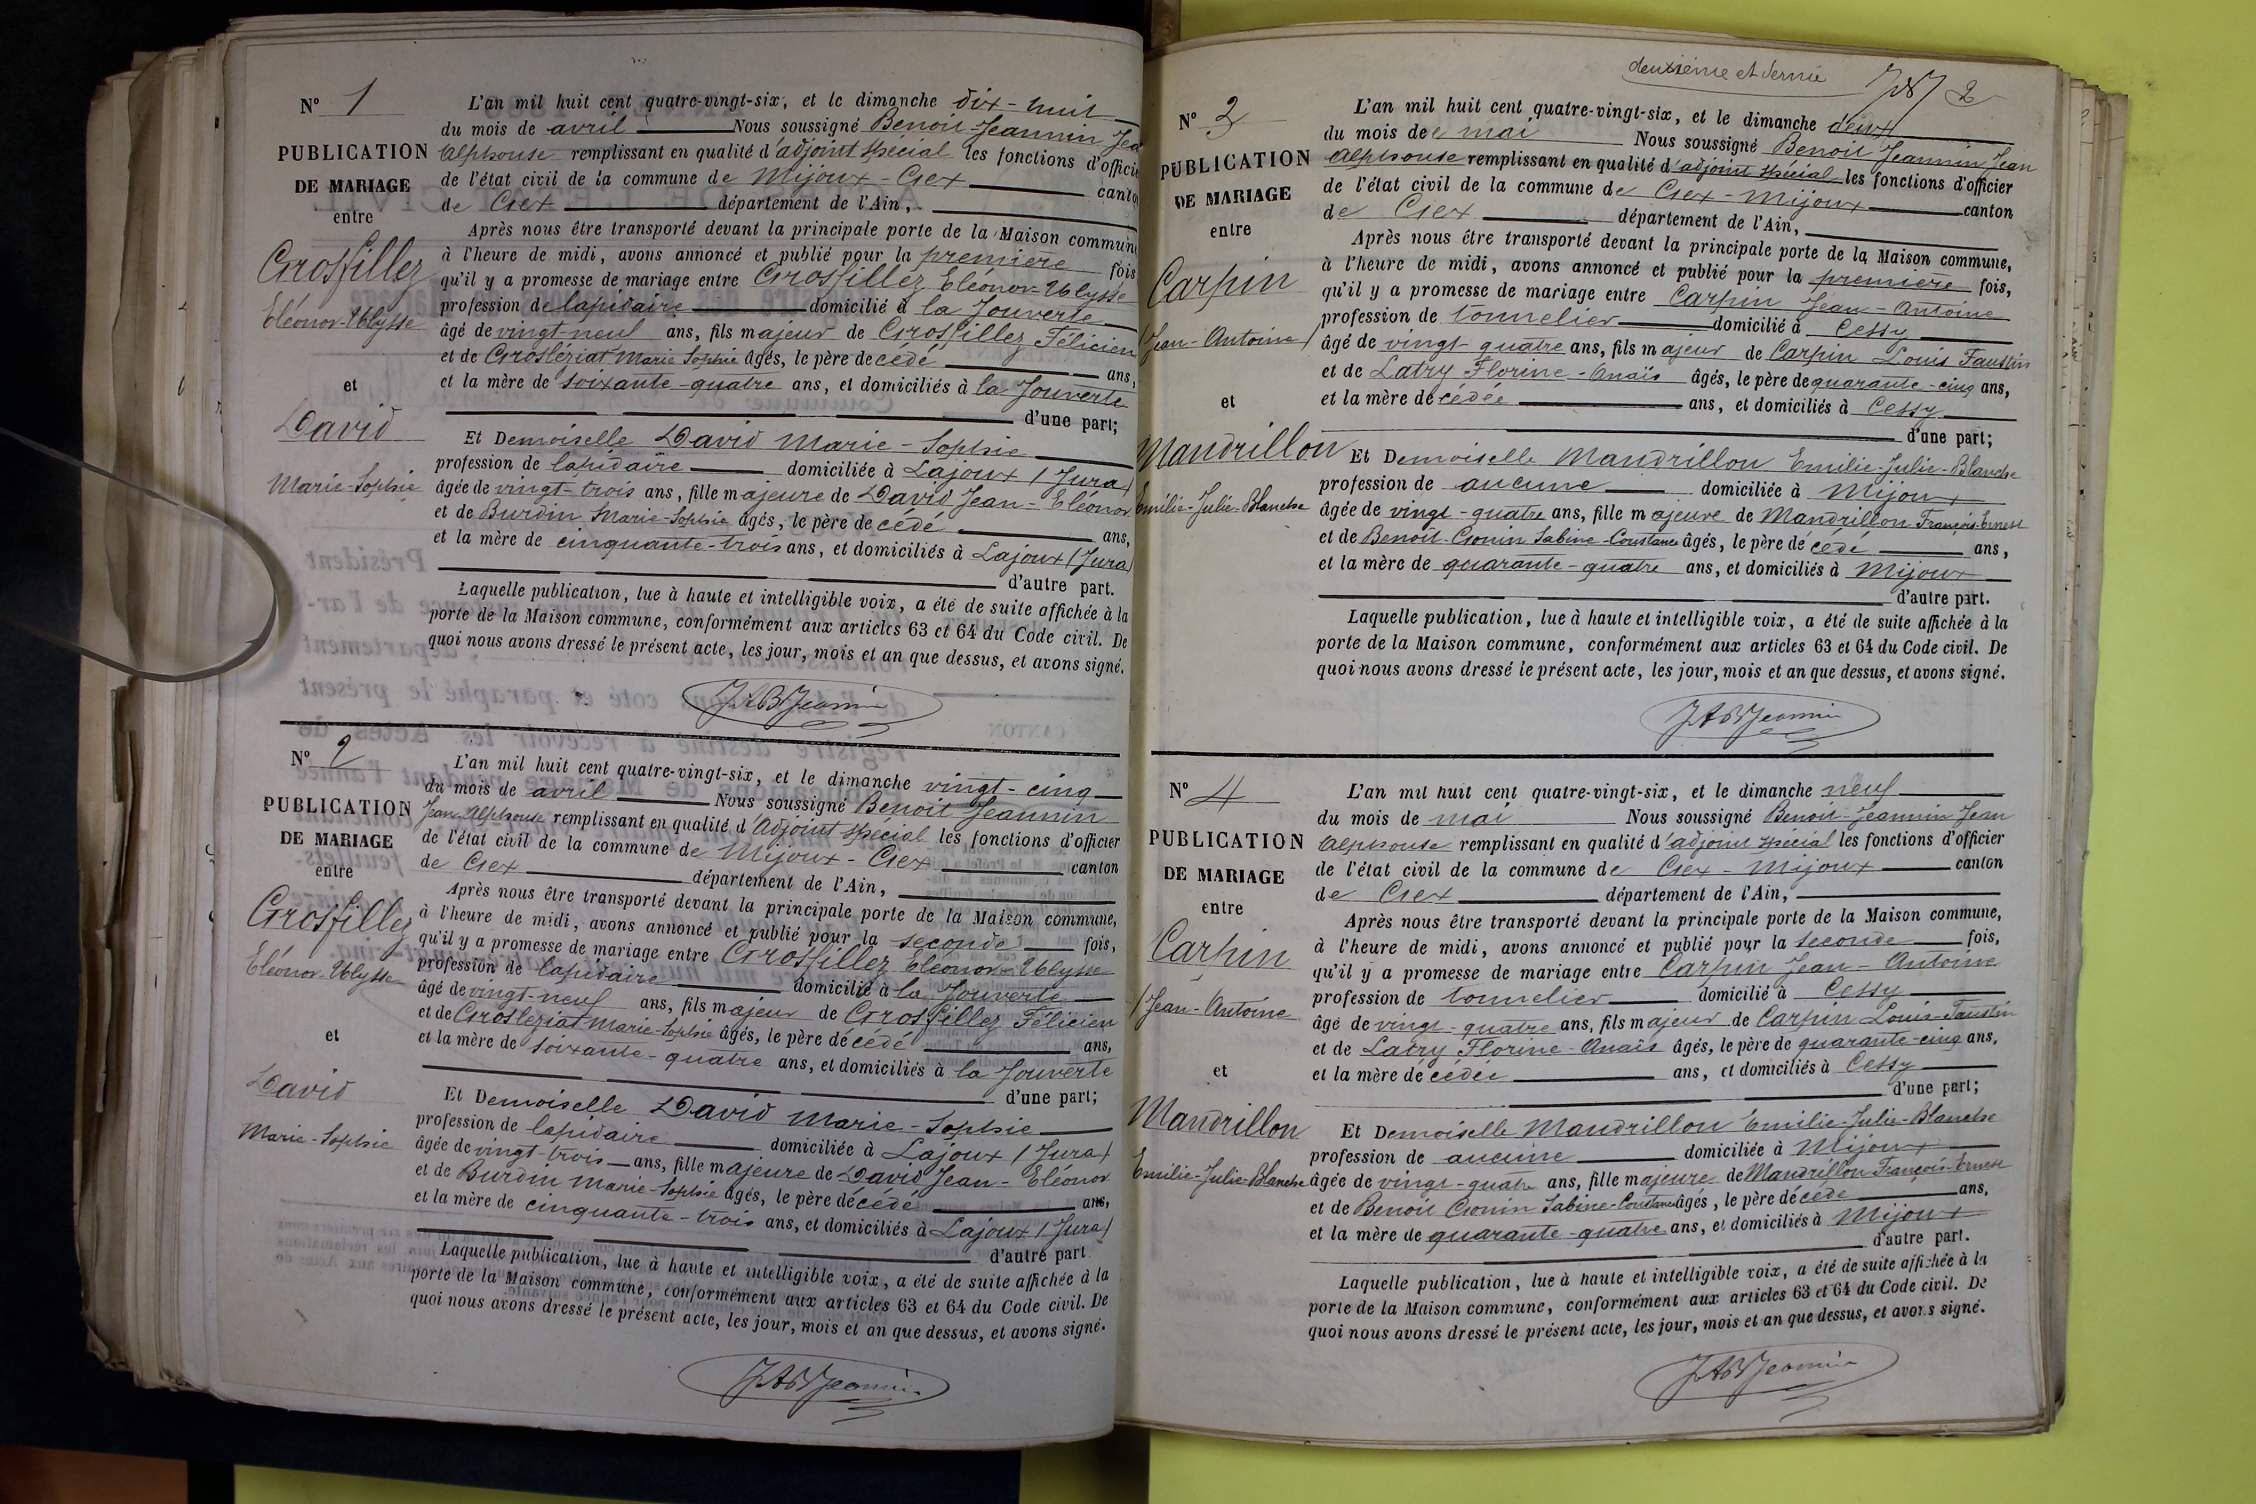 N° 1
PUBLICATION
DE MARIAGE
entre
Grosfillez
Eléonor-Ulysse
et
David
Marie-Sophie
L'an mil huit cent quatre-vingt-six, et le dimanche dix-huit
du mois de avril Nous soussigné Benoit-Jeannin Jean
Alphonse remplissant en qualité d'adjoint spécial les fonctions d'officier
de l'état civil de la commune de Mijoux-Gex canton
de Gex département de l'Ain,
Après nous être transporté devant la principale porte de la Maison commune
à l'heure de midi, avons annoncé et publié pour la première fois
qu'il y a promesse de mariage entre Grosfillez Eléonor-Ulysse
profession de lapidaire domicilié à la Jouverte
âgé de vingt-neuf ans, fils majeur de Grosfillez Félicien
et de Grosléziat Marie Sophie âgés, le père décédé ans,
et la mère de soixante-quatre ans, et domiciliés à la Jouverte
d'une part;
Et Demoiselle David Marie-Sophie
profession de lapidaire domiciliée à Lajoux (Jura)
âgée de vingt-trois ans, fille majeure de David Jean-Eléonor
et de Burdin Marie-Sophie âgés, le père décédé ans,
et la mère de cinquante-trois ans, et domiciliés à Lajoux (Jura)
d'autre part.
Laquelle publication, lue à haute et intelligible voix, a été de suite affichée à la
porte de la Maison commune, conformément aux articles 63 et 64 du Code civil. De
quoi nous avons dressé le présent acte, les jour, mois et an que dessus, et avons signé.
JABJeannin
N° 2
PUBLICATION
DE MARIAGE
entre
Grosfillez
Eléonor-Ulysse
et
David
Marie-Sophie
L'an mil huit cent quatre-vingt-six, et le dimanche vingt-cinq
du mois de avril Nous soussigné Benoit Jeannin
Jean Alphonse remplissant en qualité d'Adjoint spécial les fonctions d'officier
de l'état civil de la commune de Mijoux-Gex canton
de Gex département de l'Ain,
Après nous être transporté devant la principale porte de la Maison commune,
à l'heure de midi, avons annoncé et publié pour la seconde fois,
qu'il y a promesse de mariage entre Grosfillez Eléonor-Ulysse
profession de lapidaire domicilié à la Jouverte
âgé de vingt-neuf ans, fils majeur de Grosfillez Félicien
et de Grosleziat-Marie-Sophie âgés, le père décédé ans,
et la mère de soixante-quatre ans, et domiciliés à la Jouverte
d'une part;
Et Demoiselle David Marie-Sophie
profession de lapidaire domiciliée à Lajoux (Jura)
âgée de vingt-trois ans, fille majeure de David Jean-Eléonor
et de Burdin Marie-Sophie âgés, le père décédé ans,
et la mère de cinquante-trois ans, et domiciliés à Lajoux (Jura)
d'autre part
Laquelle publication, lue à haute et intelligible voix, a été de suite affichée à la
porte de la Maison commune, conformément aux articles 63 et 64 du Code civil. De
quoi nous avons dressé le présent acte, les jour, mois et an que dessus, et avons signé.
JABJeannin
deuxième et dernié 2
N° 3
PUBLICATION
DE MARIAGE
entre
Carpin
(Jean-Antoine)
et
Mandrillon
Emilie-Julie-Blanche
L'an mil huit cent quatre-vingt-six, et le dimanche deux
du mois de mai Nous soussigné Benoit Jeannin Jean
Alphonse remplissant en qualité d'adjoint spécial les fonctions d'officier
de l'état civil de la commune de Gex-Mijoux canton
de Gex département de l'Ain,
Après nous être transporté devant la principale porte de la Maison commune,
à l'heure de midi, avons annoncé et publié pour la première fois,
qu'il y a promesse de mariage entre Carpin Jean-Antoine
profession de tonnelier domicilié à Cessy
âgé de vingt-quatre ans, fils majeur de Carpin Louis Faustin
et de Latry Florine-Anaïs âgés, le père de quarante-cinq ans,
et la mère décédée ans, et domiciliés à Cessy
d'une part;
Et Demoiselle Mandrillon Emilie-Julie-Blanche
profession de aucune domiciliée à Mijoux
âgée de vingt-quatre ans, fille majeure de Mandrillon François-Ernest
et de Benoit-Gonin Sabine-Constance âgés, le père décédé ans,
et la mère de quarante-quatre ans, et domiciliés à Mijoux
d'autre part.
Laquelle publication, lue à haute et intelligible voix, a été de suite affichée à la
porte de la Maison commune, conformément aux articles 63 et 64 du Code civil. De
quoi nous avons dressé le présent acte, les jour, mois et an que dessus, et avons signé.
JABJeannin
N° 4
PUBLICATION
DE MARIAGE
entre
Carpin
(Jean-Antoine
et
Mandrillon
Emilie-Julie-Blanche
L'an mil huit cent quatre-vingt-six, et le dimanche neuf
du mois de mai Nous soussigné Benoit-Jeannin Jean
Alphonse remplissant en qualité d'adjoint spécial les fonctions d'officier
de l'état civil de la commune de Gex-Mijoux canton
de Gex département de l'Ain,
Après nous être transporté devant la principale porte de la Maison commune,
à l'heure de midi, avons annoncé et publié pour la seconde fois,
qu'il y a promesse de mariage entre Carpin Jean-Antoine
profession de tonnelier domicilié à Cessy
âgé de vingt-quatre ans, fils majeur de Carpin Louis-Faustin
et de Latry Florine-Anaïs âgés, le père de quarante-cinq ans,
et la mère décédée ans, et domiciliés à Cessy
d'une part;
Et Demoiselle Mandrillon Emilie-Julie-Blanche
profession de aucune domiciliée à Mijoux
âgée de vingt-quatre ans, fille majeure de Mandrillon François-Ernest
et de Benoit Gonin Sabine-Constance âgés, le père décédé ans,
et la mère de quarante-quatre ans, et domiciliés à Mijoux
d'autre part.
Laquelle publication, lue à haute et intelligible voix, a été de suite affichée à la
porte de la Maison commune, conformément aux articles 63 et 64 du Code civil. De
quoi nous avons dressé le présent acte, les jour, mois et an que dessus, et avons signé.
JABJeannin